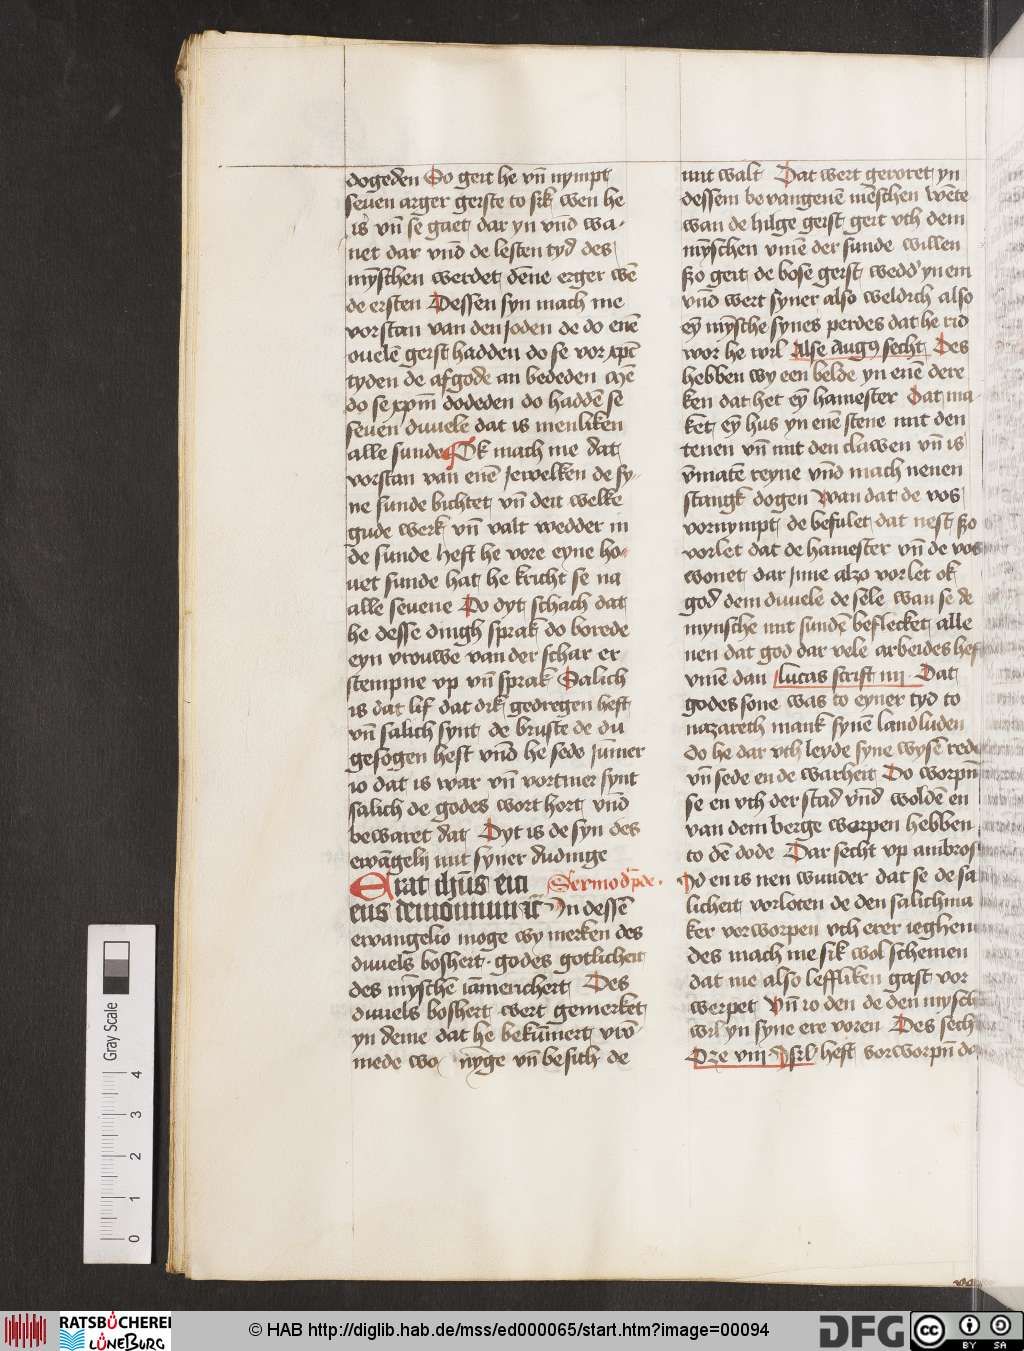 dogeden So geit he vñ nympt
seuen arger geiste to sik wen he
is vñ se gaet dar yn vnd wa-
net dar vnd de lesten tyd des
mȳschen werdet dēne erger wē
de ersten Dessen syn mach me
vorstan van den joden de do enē
ouelē geist hadden do se vor xpi
tyden de afgode an bededen Mē
do se xpm dodeden do haddē se
seuen duuele dat is menliken
alle sunde Ok mach me dat
vorstan van enē jewelken de sy-
ne sunde bichtet vñ deit welke
gude werk vñ valt wedder in
de sunde Heft he vore eyne ho-
uet sunde hat he kricht se na
alle seuene Do dyt schach dat
he desse dingh sprak do borede
eyn vrouwe van der schar er
stempne vp vñ sprak Salich
is dat lif dat dik gedregen heft
vñ salich synt de bruste de du
gesogen hefst vnd he sede Jumer
io dat is war vñ vortmer synt
salich de godes wort hort vnd
bewaret dat Dyt is de syn des
ewāgelij mit syner dudinge
Erat ihūs eici
Sermo dpde.
ens demonium ic̄ In dessē
ewangelio moge wy merken des
duuels bosheit. godes gotlicheit
des mȳschē iāmericheit Des
duuels bosheit wert gemerket
yn deme dat he bekūmert vrō-
mede wo nȳge vñ besith de
mit walt Dat wert geroret yn
dessem bevangenē mēschen Wēte
wan de hilge geist geit vth dem
mȳschen vmē der sunde willen
so geit de bose geist wedd' yn em
vnd wert syner also weldich also
eȳ mȳsche synes perdes dat he rid
wor he wil Alse Augꝰ secht Des
hebben wy een belde yn enē dere
ken dat het eȳ hamester Dat ma-
ket eȳ hus yn enē stene mit den
tenen vñ mit den clawen vñ is
vmatē reyne vnd mach nenen
stangk dogen Wan dat de vos
vornympt de besulet dat nest so
vorlet dat de hamester vñ de vos
wonet dar jnne alzo vorlet ok
god dem duuele de sele wan se de
mynsche mit sundē beflecket alle
nen dat god dar vele arbeides hef
vmē dan lucas scrift iiii. Dat
godes sone was to eyner tyd to
nazareth mank synē landluden
do he dar vth leyde syne wysē rede
vñ sede en de warheit Do worpn̄
se en vth der stad vnd woldē en
van dem berge worpen hebben
to dē dode Dar secht vp ambros
Id en is nen wunder dat se de sa
licheit vorloten de den salichma
ker vorworpen vth erer ieghen
des mach me sik wol schemen
dat me also leffliken gast vor
werpet Vñ io den de den mysch
wil yn syne ere voren Des sech
Oze viii Isrl heft vorworpn̄ do
Gray Scale
4
3
2
1
0
RATSBÜCHEREI
LÜNEBURG
© HAB http://diglib.hab.de/mss/ed000065/start.htm?image=00094
DFG
cc
BY SA